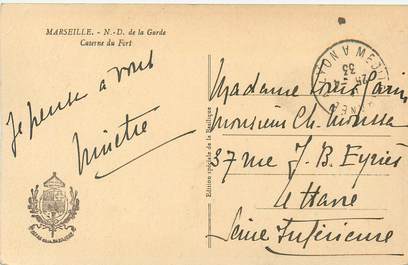 MARSEILLE. - N.-D. de la Garde
Caserne du Fort
Je pense à vous
Edition spéciale de la Basilique
LYON A MED
25 -4
33
Madame Louis
Monsieur Ch.
37 rue J. B. Eyriès
Le Havre
Seine Inférieure